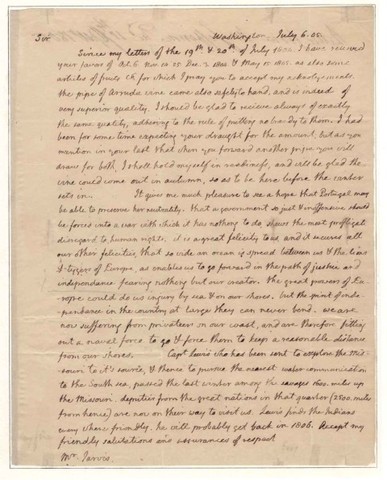 Sir
Washington, July 6. 05.
Since my letters of the 19th & 20th of July 1804. I have received
your favor of Oct. 6 Nov. 10. 25 Dec. 2. 1804 & May 15. 1805. as also some
articles of fruits &c for which I pray you to accept my acknolegements.
the pipe of Arruda wine came also safely to hand, and is indeed of
very superior quality. I should be glad to recieve always of exactly
the same quality, adhering to the rule of putting no brandy to them. I had
been for some time expecting your draught for the amount, but as you
mention in your last that when you forward another pipe you will
draw for both, I shall hold myself in readiness, and will be glad the
wine could come out in autumn, so as to be here before the winter
sets in. It gives me much pleasure to see a hope that Portugal may
be able to preserve her neutrality. that a government so just & inoffensive should
be forced into a war with which it has nothing to do, shews the most profligate
disregard to human rights. it is a great felicity to us, and it secures all
our other felicities, that so wide an ocean is spread between us & the lions
& tygers of Europe, as enables us to go forward in the path of justice and
independance fearing nothing but our creator. the great powers of Eu-
rope could do us injury by sea & on our shores. but the spirit of inde-
pendance in the country at large they can never bend. we are
now suffering from privateers on our coast, and are therefore fitting
out a naval force to go & force them to keep a reasonable distance
from our shores. Capt Lewis who has been sent to explore the Mis-
souri to it's source, & thence to pursue the nearest water communication
to the South sea, passed the last winter among the savages 1600. miles up
the Missouri. deputies from the great nations in that quarter (2500. miles
from hence) are now on their way to visit us. Lewis finds the Indians
every where friendly. he will probably get back in 1806. Accept my
friendly salutations and assurances of respect
Mr. Jarvis.